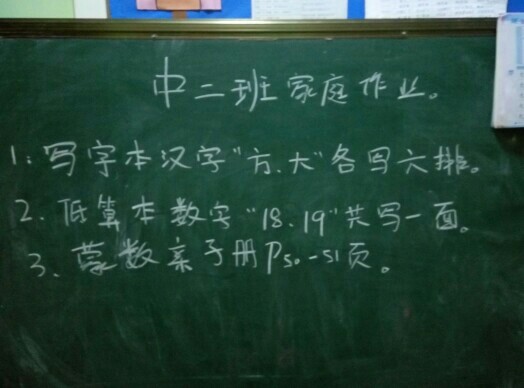 中二班家庭作业。
1：写字本汉字"方.大"各写六排。
2.低算本数字"18.19"共写一面。
3、蒙数亲子册P50-51页。